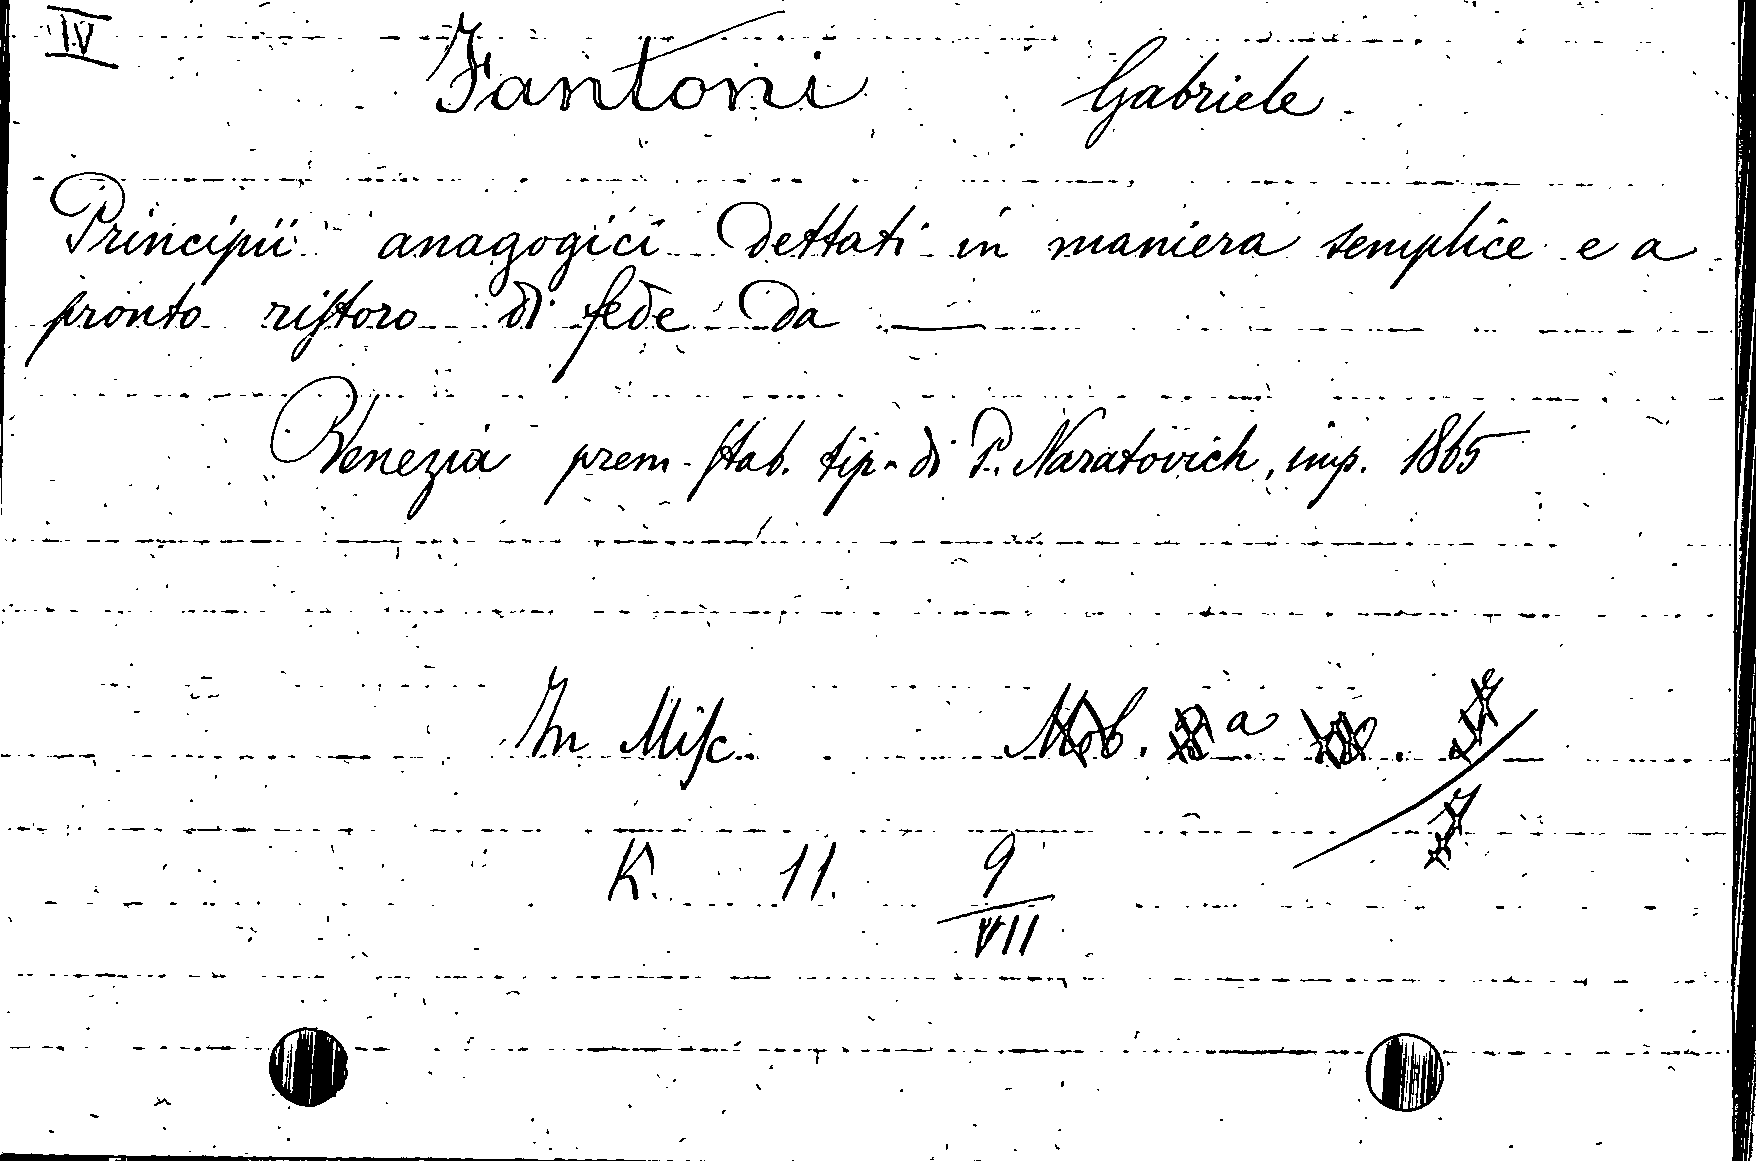 IV
Fantoni Gabriele
Principii anagogici dettati in maniera semplice e a
pronto ristoro di fede da ———
Venezia prem. stab. tip. di P. Naratovich, imp. 1865
In Misc. Mob. a
K. 11. 9
VII